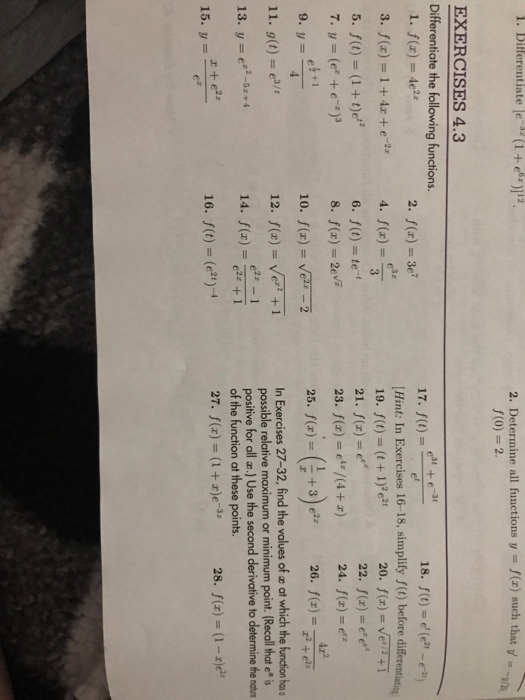 1. Differentiate [e^{-3x}(1 + e^{6x})]^{12}.
2. Determine all functions y = f(x) such that y' =
f(0) = 2.
EXERCISES 4.3
Differentiate the following functions.
1. f(x) = 4e^{2x}
2. f(x) = 3e^7
3. f(x) = 1 + 4x + e^{-2x}
4. f(x) = e^{3x}/3
5. f(t) = (1 + t)e^{t²}
6. f(t) = te^{-t}
7. y = (e^x + e^{-x})³
8. f(x) = 2e^{√x}
9. y = e^{x/2+1}/4
10. f(x) = √(e^{2x} - 2)
11. g(t) = e^{3/t}
12. f(x) = √(e^{x²} + 1)
13. y = e^{x²-5x+4}
14. f(x) = (e^{2x} - 1)/(e^{2x} + 1)
15. y = (x + e^{2x})/e^x
16. f(t) = (e^{2t})^{-4}
17. f(t) = (e^{3t} + e^{-3t})/e^t
18. f(t) = e^t(e^{2t} - e^{-2t})
[Hint: In Exercises 16–18, simplify f(t) before differentiating.
19. f(t) = (t + 1)²e^{2t}
20. f(x) = √(e^{x/2} + 1)
21. f(x) = e^{e^x}
22. f(x) = e^x e^{e^x}
23. f(x) = e^{4x}/(4 + x)
24. f(x) =
25. f(x) = (1/x + 3) e^{2x}
26. f(x) = 4x²/(x² + e^{2x})
In Exercises 27–32, find the values of x at which the function has a
possible relative maximum or minimum point. (Recall that e^x is
positive for all x.) Use the second derivative to determine the nature
of the function at these points.
27. f(x) = (1 + x)e^{-3x}
28. f(x) = (1 - x)e^{2x}